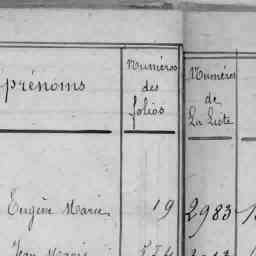 prénoms
Numéros
des
folios
Numéros
de
La Liste
Eugène Marie. 19 2983
Jean Marie